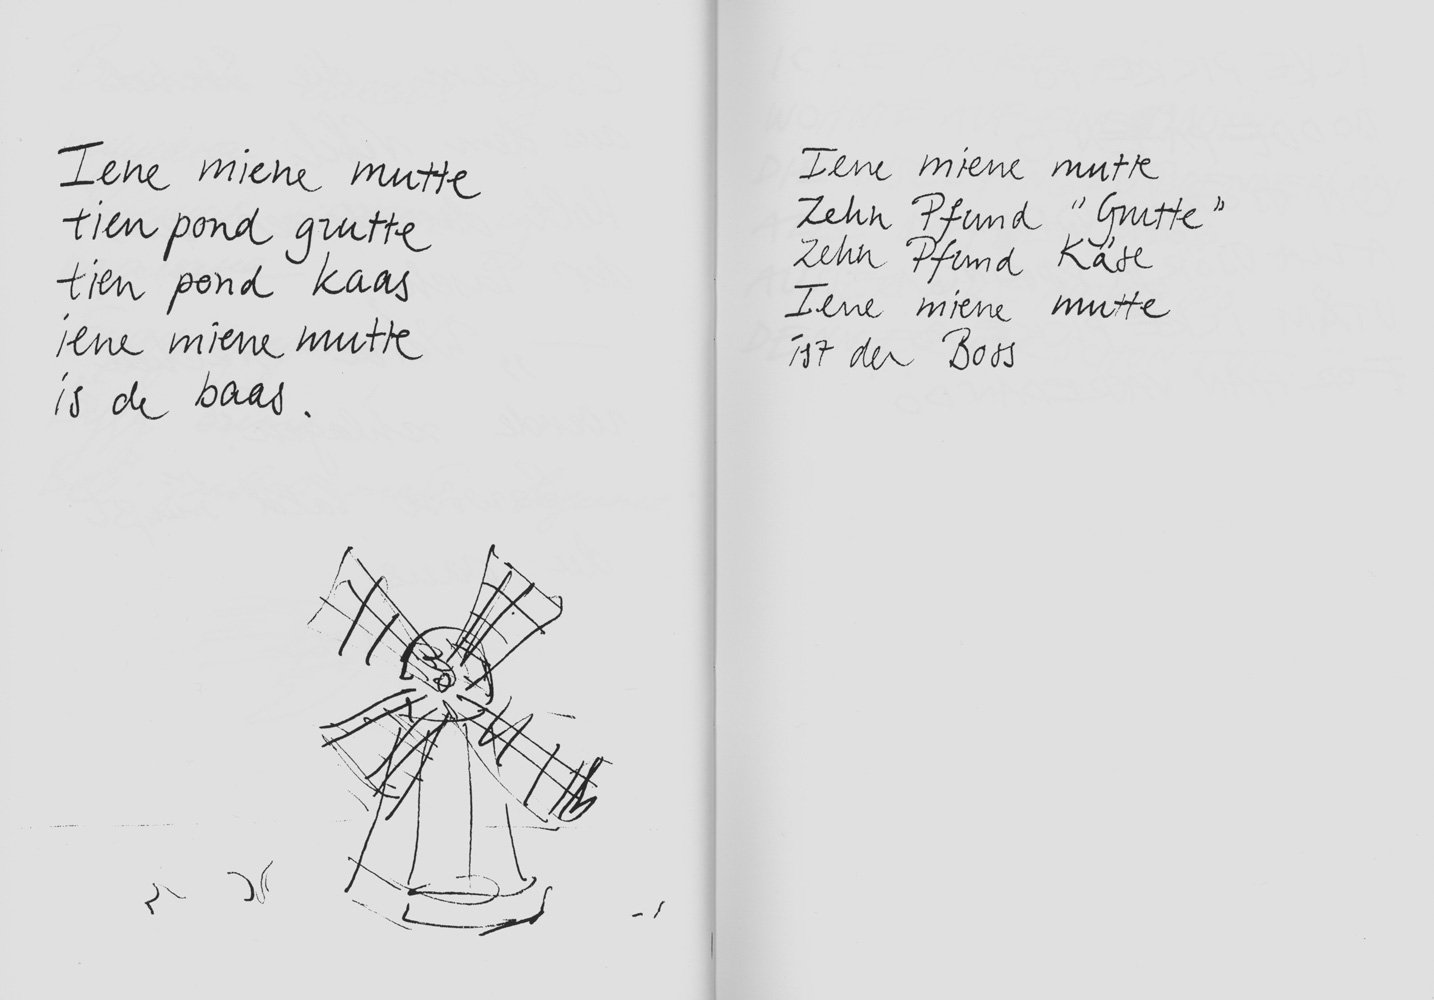 Iene miene mutte
tien pond grutte
tien pond kaas
iene miene mutte
is de baas.
Iene miene mutte
Zehn Pfund "Grutte"
Zehn Pfund Käse
Iene miene mutte
ist der Boss